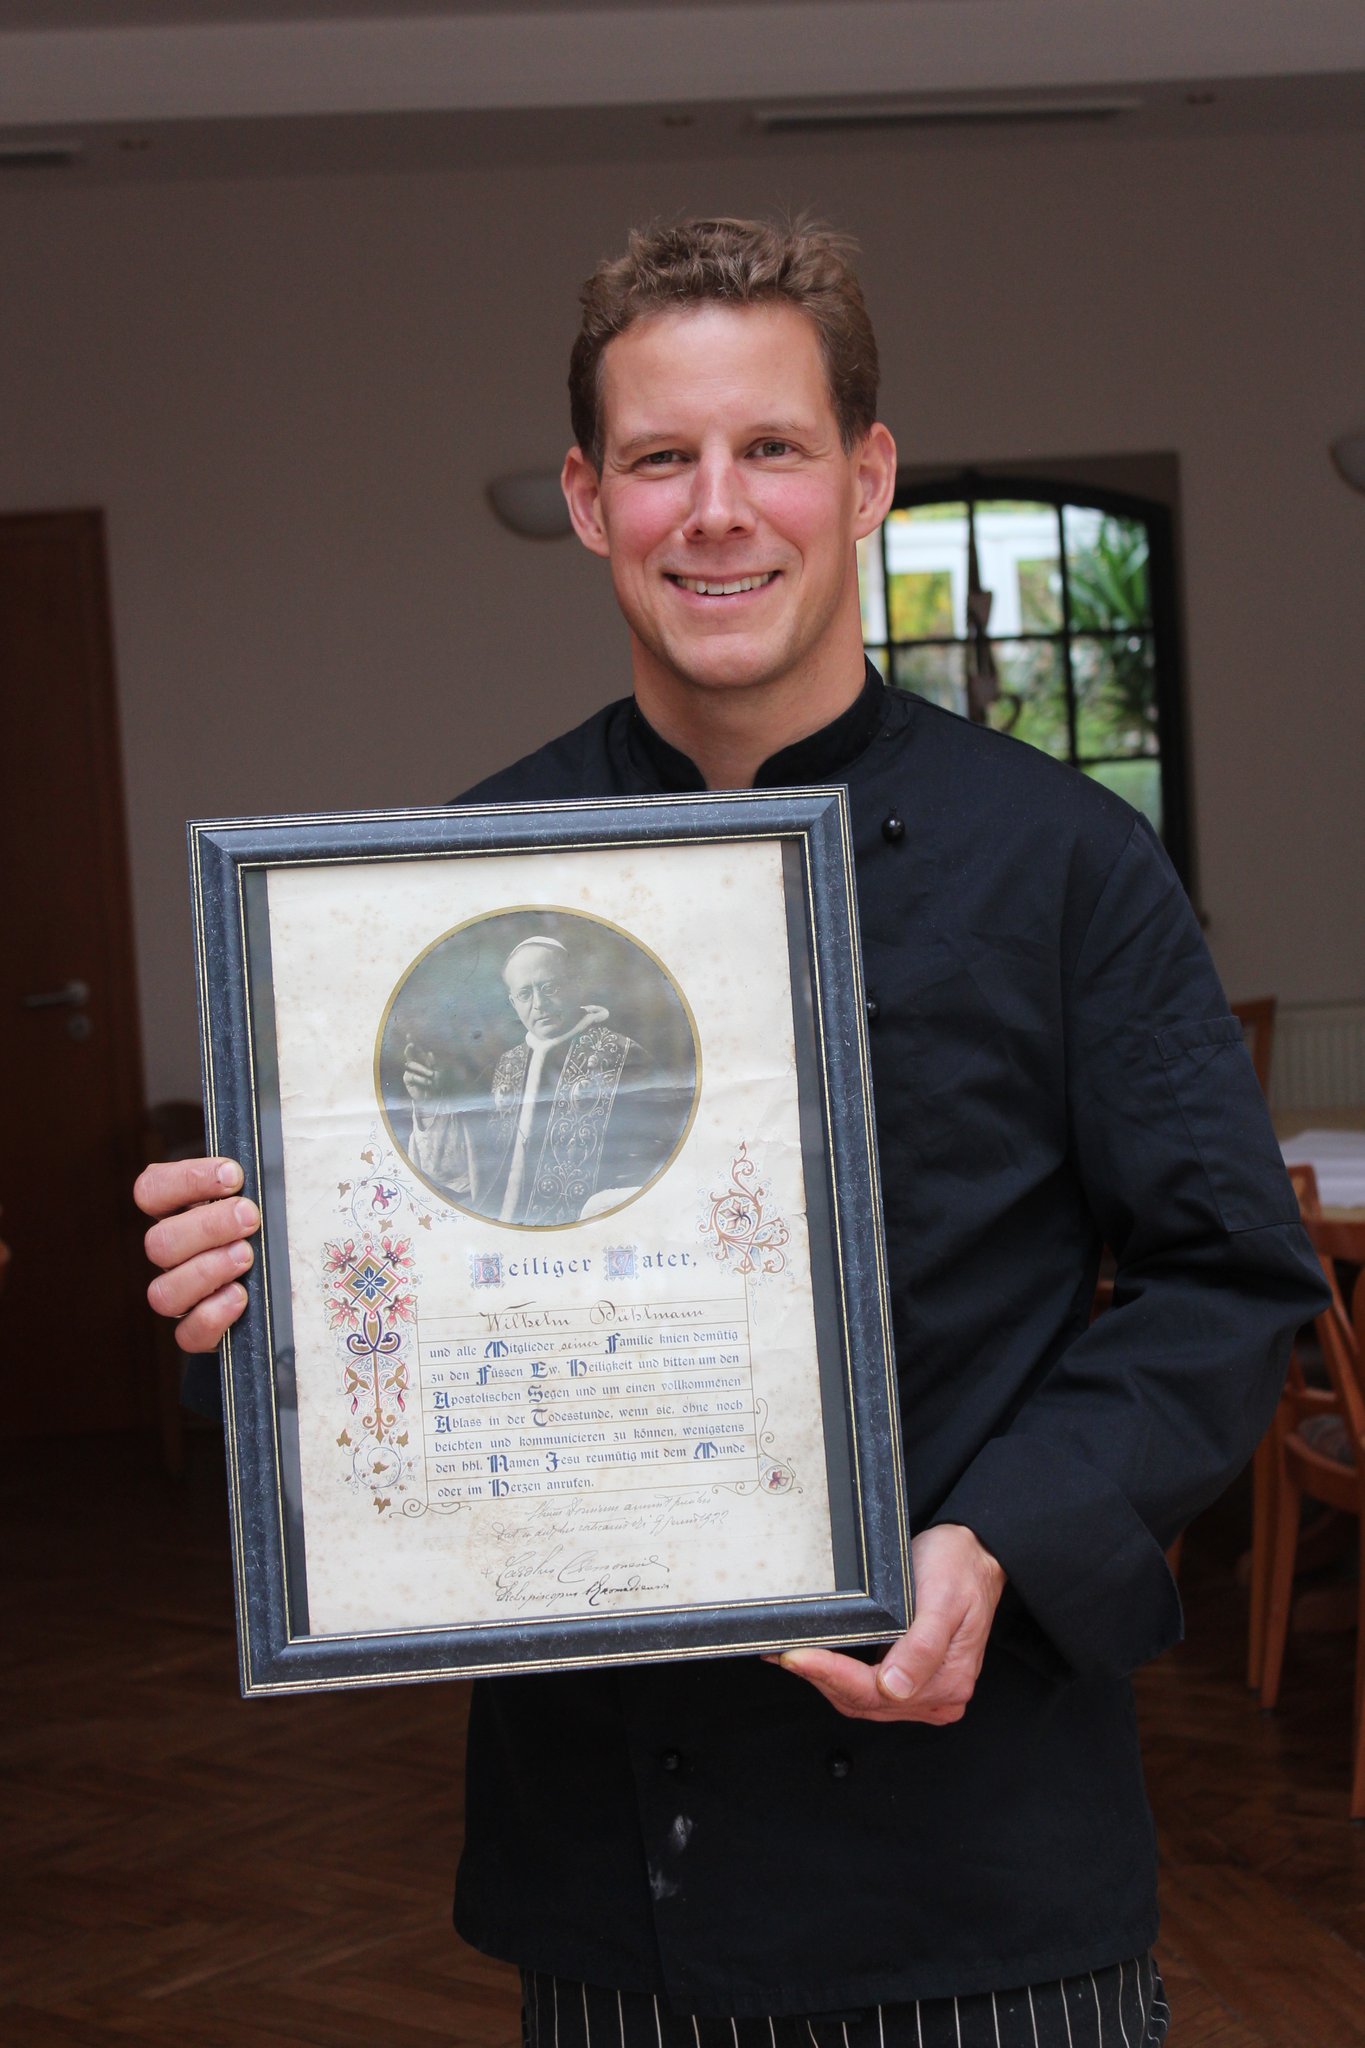 Heiliger Vater,
Wilhelm Bühlmann
und alle Mitglieder seiner Familie knien demütig
zu den Füssen Ew. Heiligkeit und bitten um den
Apostolischen Segen und um einen vollkommenen
Ablass in der Todesstunde, wenn sie, ohne noch
beichten und kommunicieren zu können, wenigstens
den hhl. Namen Jesu reumütig mit dem Munde
oder im Herzen anrufen.
1922